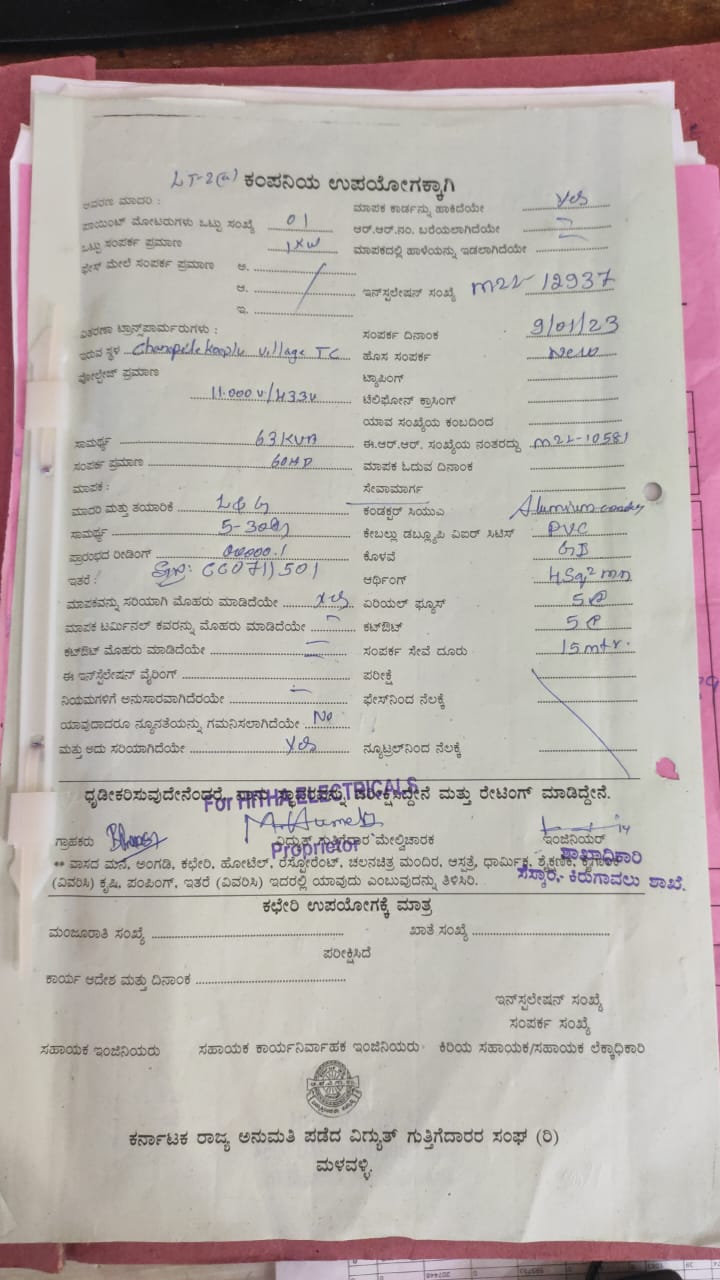 LT-2(a) ಕಂಪನಿಯ ಉಪಯೋಗಕ್ಕಾಗಿ
ಆವರಣ ಮಾದರಿ : ಮಾಪಕ ಕಾರ್ಡನ್ನು ಹಾಕಿದೆಯೇ Yes
ಪಾಯಿಂಟ್ ಮೋಟರುಗಳು ಒಟ್ಟು ಸಂಖ್ಯೆ 01 ಆರ್.ಆರ್.ನಂ. ಬರೆಯಲಾಗಿದೆಯೇ
ಒಟ್ಟು ಸಂಪರ್ಕ ಪ್ರಮಾಣ 1KW ಮಾಪಕದಲ್ಲಿ ಹಾಳೆಯನ್ನು ಇಡಲಾಗಿದೆಯೇ
ಫೇಸ್ ಮೇಲೆ ಸಂಪರ್ಕ ಪ್ರಮಾಣ ಅ.
ಆ. ಇನ್‌ಸ್ಟಲೇಷನ್ ಸಂಖ್ಯೆ M22-12937
ಇ.
ವಿತರಣಾ ಟ್ರಾನ್ಸ್‌ಪಾರ್ಮರುಗಳು : ಸಂಪರ್ಕ ದಿನಾಂಕ 9/01/23
ಇರುವ ಸ್ಥಳ village TC ಹೊಸ ಸಂಪರ್ಕ New
ವೋಲ್ಟೇಜ್ ಪ್ರಮಾಣ ಟ್ಯಾಪಿಂಗ್
11.000V/433V ಟೆಲಿಫೋನ್ ಕ್ರಾಸಿಂಗ್
ಯಾವ ಸಂಖ್ಯೆಯ ಕಂಬದಿಂದ
ಸಾಮರ್ಥ್ಯ 63KVA ಈ.ಆರ್.ಆರ್. ಸಂಖ್ಯೆಯ ನಂತರದ್ದು M22-10581
ಸಂಪರ್ಕ ಪ್ರಮಾಣ 60HP ಮಾಪಕ ಓದುವ ದಿನಾಂಕ
ಮಾಪಕ : ಸೇವಾಮಾರ್ಗ
ಮಾದರಿ ಮತ್ತು ತಯಾರಿಕೆ L&G ಕಂಡಕ್ಟರ್ ಸಿಯುಎ
ಸಾಮರ್ಥ್ಯ ಕೇಬಲ್ಲು ಡಬ್ಲ್ಯೂಪಿ ವಿಐರ್ ಸಿಟಿಸ್ PVC
ಪ್ರಾರಂಭದ ರೀಡಿಂಗ್ 00000.1 ಕೊಳವೆ GI
ಇತರೆ : ಆರ್ಥಿಂಗ್ 4Sq² mm
ಮಾಪಕವನ್ನು ಸರಿಯಾಗಿ ಮೊಹರು ಮಾಡಿದೆಯೇ Yes ಏರಿಯಲ್ ಫ್ಯೂಸ್
ಮಾಪಕ ಟರ್ಮಿನಲ್ ಕವರನ್ನು ಮೊಹರು ಮಾಡಿದೆಯೇ ಕಟ್‌ಔಟ್
ಕಟ್‌ಔಟ್ ಮೊಹರು ಮಾಡಿದೆಯೇ ಸಂಪರ್ಕ ಸೇವೆ ದೂರು 15mtr.
ಈ ಇನ್‌ಸ್ಟಲೇಷನ್ ವೈರಿಂಗ್ ಪರೀಕ್ಷೆ
ನಿಯಮಗಳಿಗೆ ಅನುಸಾರವಾಗಿದೆರಯೇ ಫೇಸ್‌ನಿಂದ ನೆಲಕ್ಕೆ
ಯಾವುದಾದರೂ ನ್ಯೂನತೆಯನ್ನು ಗಮನಿಸಲಾಗಿದೆಯೇ No
ಮತ್ತು ಅದು ಸರಿಯಾಗಿದೆಯೇ Yes ನ್ಯೂಟ್ರಲ್‌ನಿಂದ ನೆಲಕ್ಕೆ
ಧೃಡೀಕರಿಸುವುದೇನೆಂದರೆ, ನಾನು ಸ್ಥಾವರವನ್ನು ಪರೀಕ್ಷಿಸಿದ್ದೇನೆ ಮತ್ತು ರೇಟಿಂಗ್ ಮಾಡಿದ್ದೇನೆ.
For HITHA ELECTRICALS
ಗ್ರಾಹಕರು ವಿದ್ಯುತ್ ಗುತ್ತಿಗೆದಾರ ಮೇಲ್ವಿಚಾರಕ ಇಂಜಿನಿಯರ್
Proprietor
ಶಾಖಾಧಿಕಾರಿ
** ವಾಸದ ಮನೆ, ಅಂಗಡಿ, ಕಛೇರಿ, ಹೋಟೆಲ್, ರೆಸ್ಟೋರೆಂಟ್, ಚಲನಚಿತ್ರ ಮಂದಿರ, ಆಸ್ಪತ್ರೆ, ಧಾರ್ಮಿಕ, ಶೈಕ್ಷಣಿಕ, ಕೈಗಾರಿಕೆ
(ವಿವರಿಸಿ) ಕೃಷಿ, ಪಂಪಿಂಗ್, ಇತರೆ (ವಿವರಿಸಿ) ಇದರಲ್ಲಿ ಯಾವುದು ಎಂಬುವುದನ್ನು ತಿಳಿಸಿರಿ.
ಕಿರುಗಾವಲು ಶಾಖೆ.
ಕಛೇರಿ ಉಪಯೋಗಕ್ಕೆ ಮಾತ್ರ
ಮಂಜೂರಾತಿ ಸಂಖ್ಯೆ ಖಾತೆ ಸಂಖ್ಯೆ
ಪರೀಕ್ಷಿಸಿದೆ
ಕಾರ್ಯ ಆದೇಶ ಮತ್ತು ದಿನಾಂಕ
ಇನ್‌ಸ್ಟಲೇಷನ್ ಸಂಖ್ಯೆ
ಸಂಪರ್ಕ ಸಂಖ್ಯೆ
ಸಹಾಯಕ ಇಂಜಿನಿಯರು ಸಹಾಯಕ ಕಾರ್ಯನಿರ್ವಾಹಕ ಇಂಜಿನಿಯರು ಕಿರಿಯ ಸಹಾಯಕ/ಸಹಾಯಕ ಲೆಕ್ಕಾಧಿಕಾರಿ
ಕರ್ನಾಟಕ ರಾಜ್ಯ ಅನುಮತಿ ಪಡೆದ ವಿಗ್ಯುತ್ ಗುತ್ತಿಗೆದಾರರ ಸಂಘ (ರಿ)
ಮಳವಳ್ಳಿ.